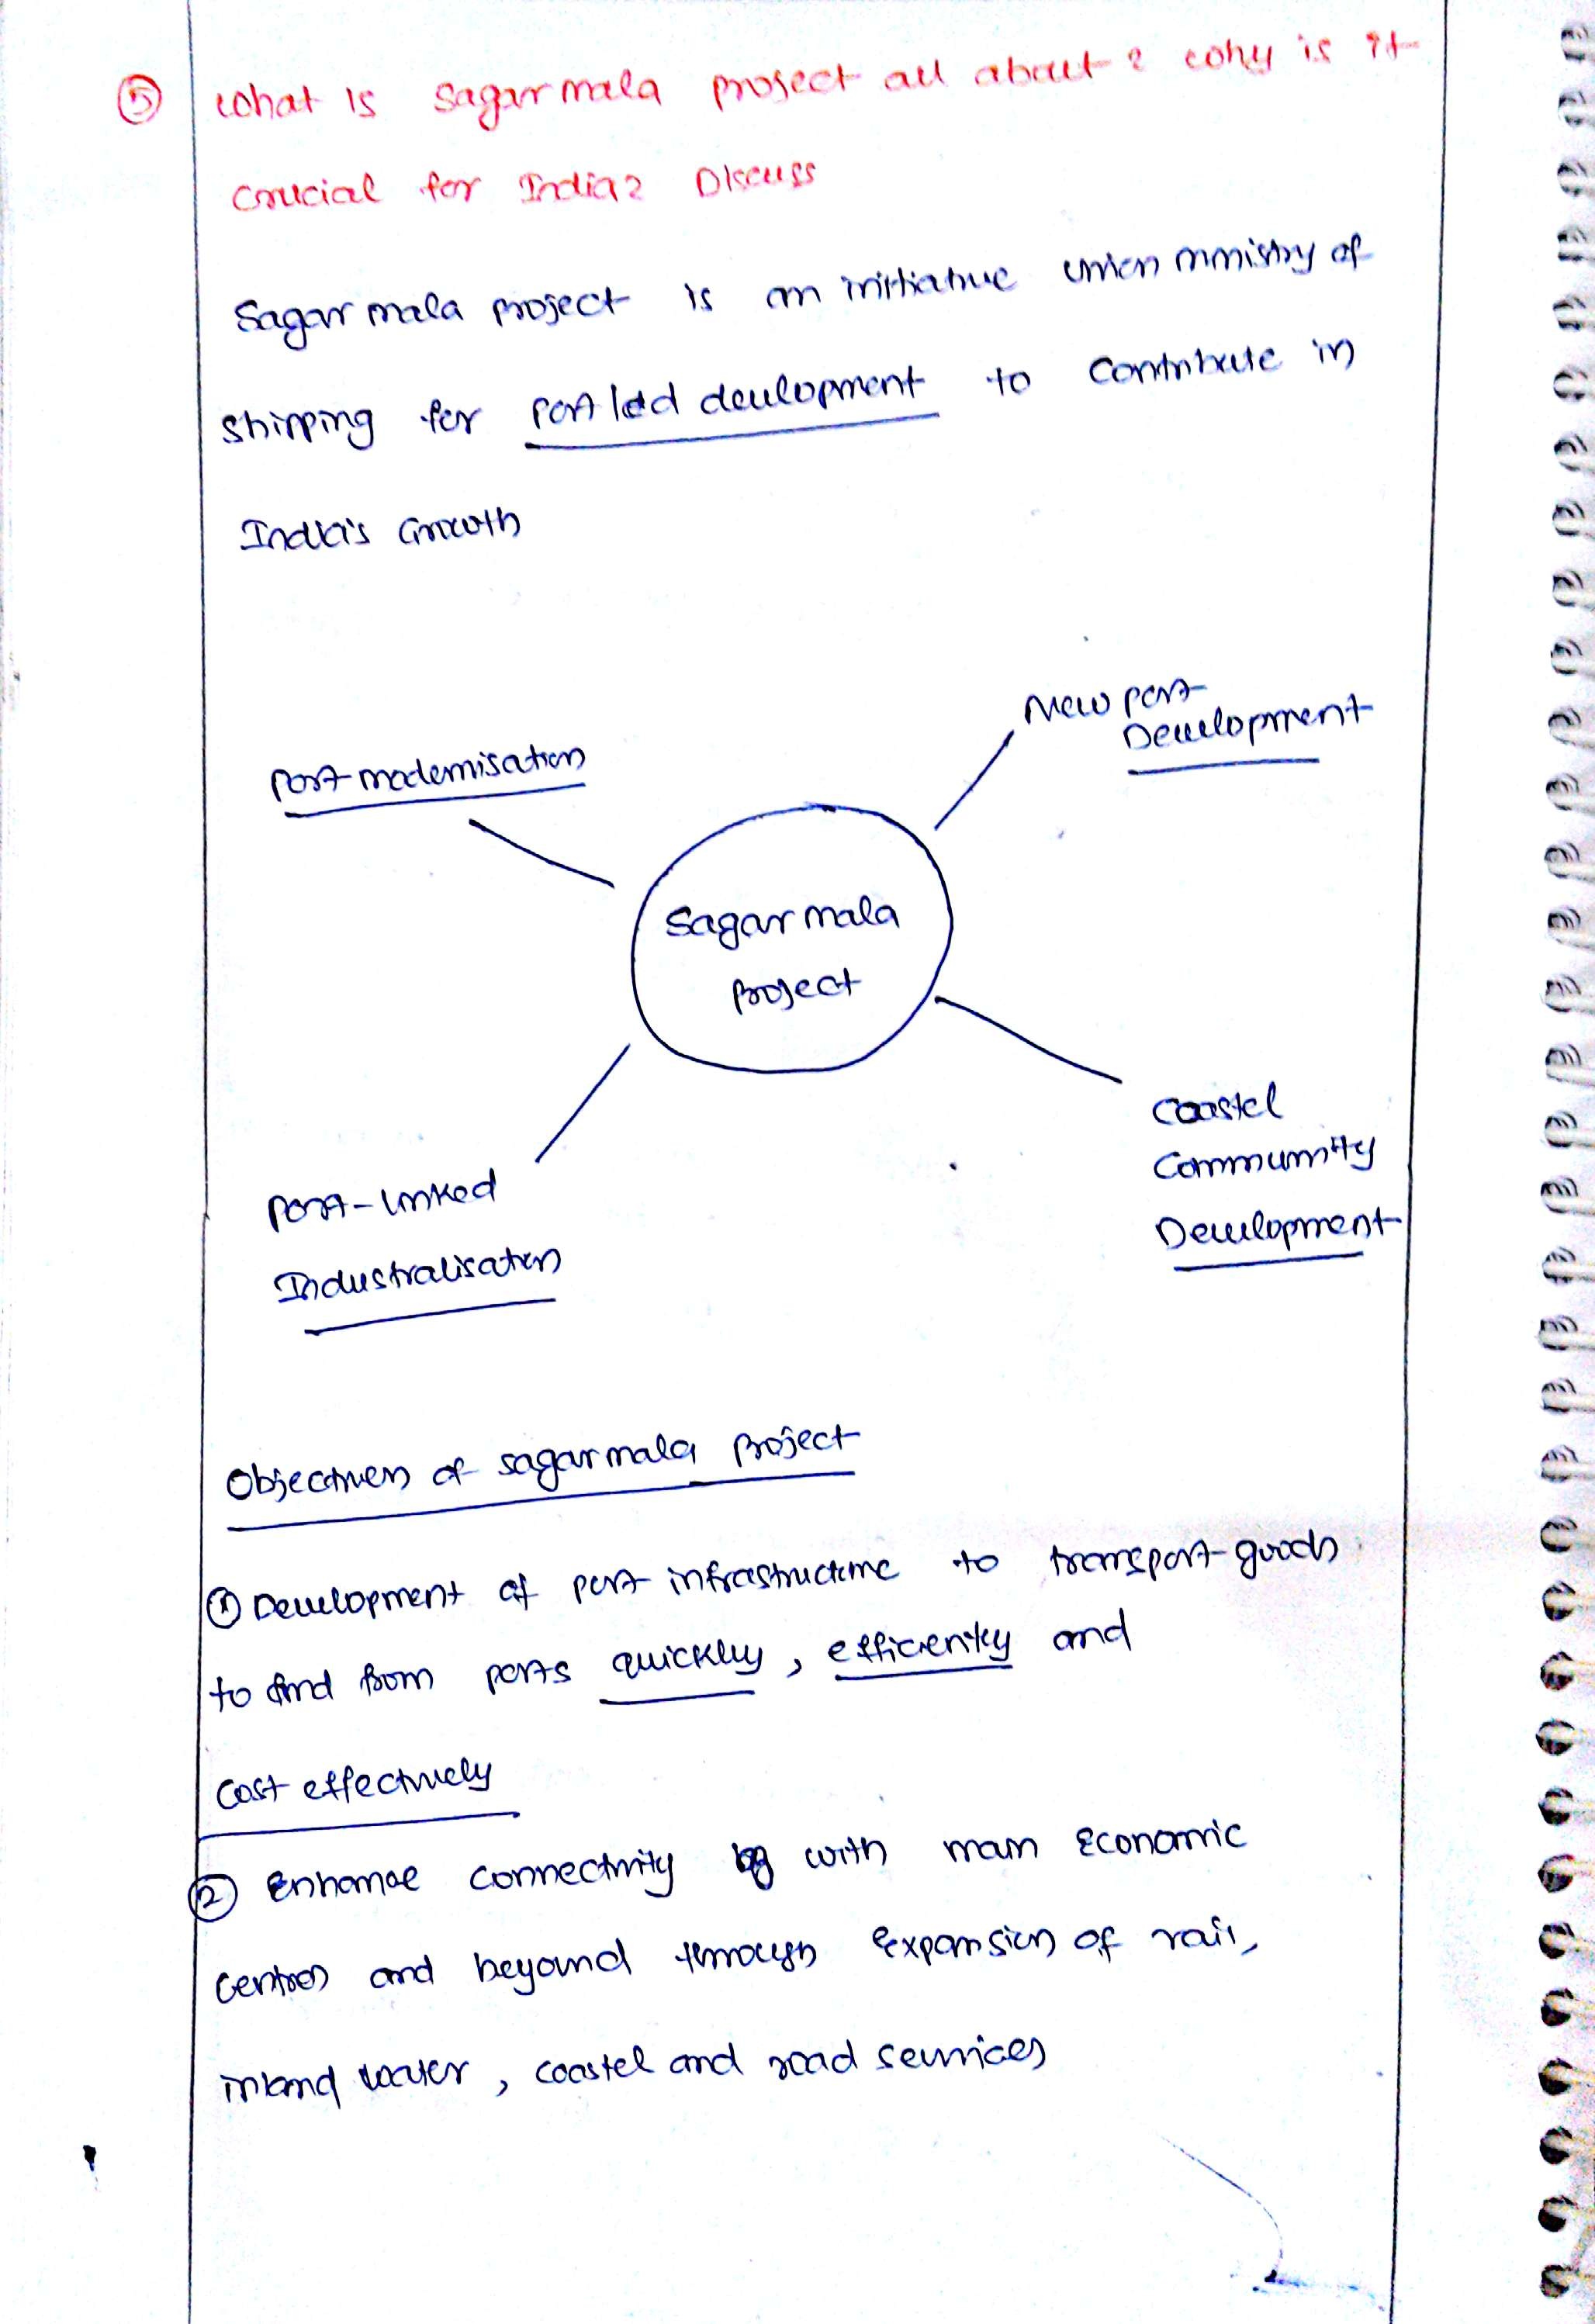 5 What is sagarmala project all about? why is it
crucial for India? Discuss
Sagarmala project is an initiative union ministry of
shipping for port led development to contribute in
India's Growth
New port
Development
port modernisation
Sagarmala
project
Coastel
Community
Development
port-linked
Industralisation
Objectives of sagarmala project
1 Development of port infrastructure to transport goods
to and from ports quickly, efficiently and
cost effectively
2 Enhance connectivity with main Economic
centres and beyound through expansion of rail,
inland water, coastel and road services